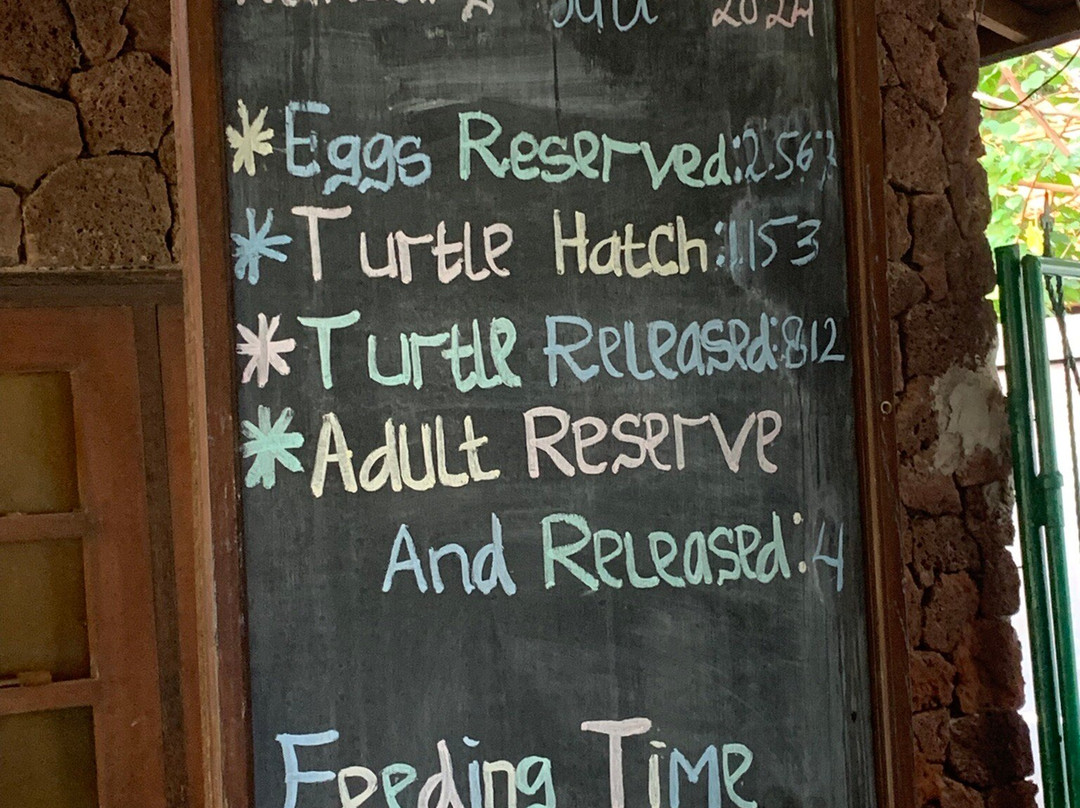 Juli 2024
* Eggs Reserved: 2.563
* Turtle Hatch: 1153
* Turtle Released: 812
* Adult Reserve
And Released: 4
Feeding Time